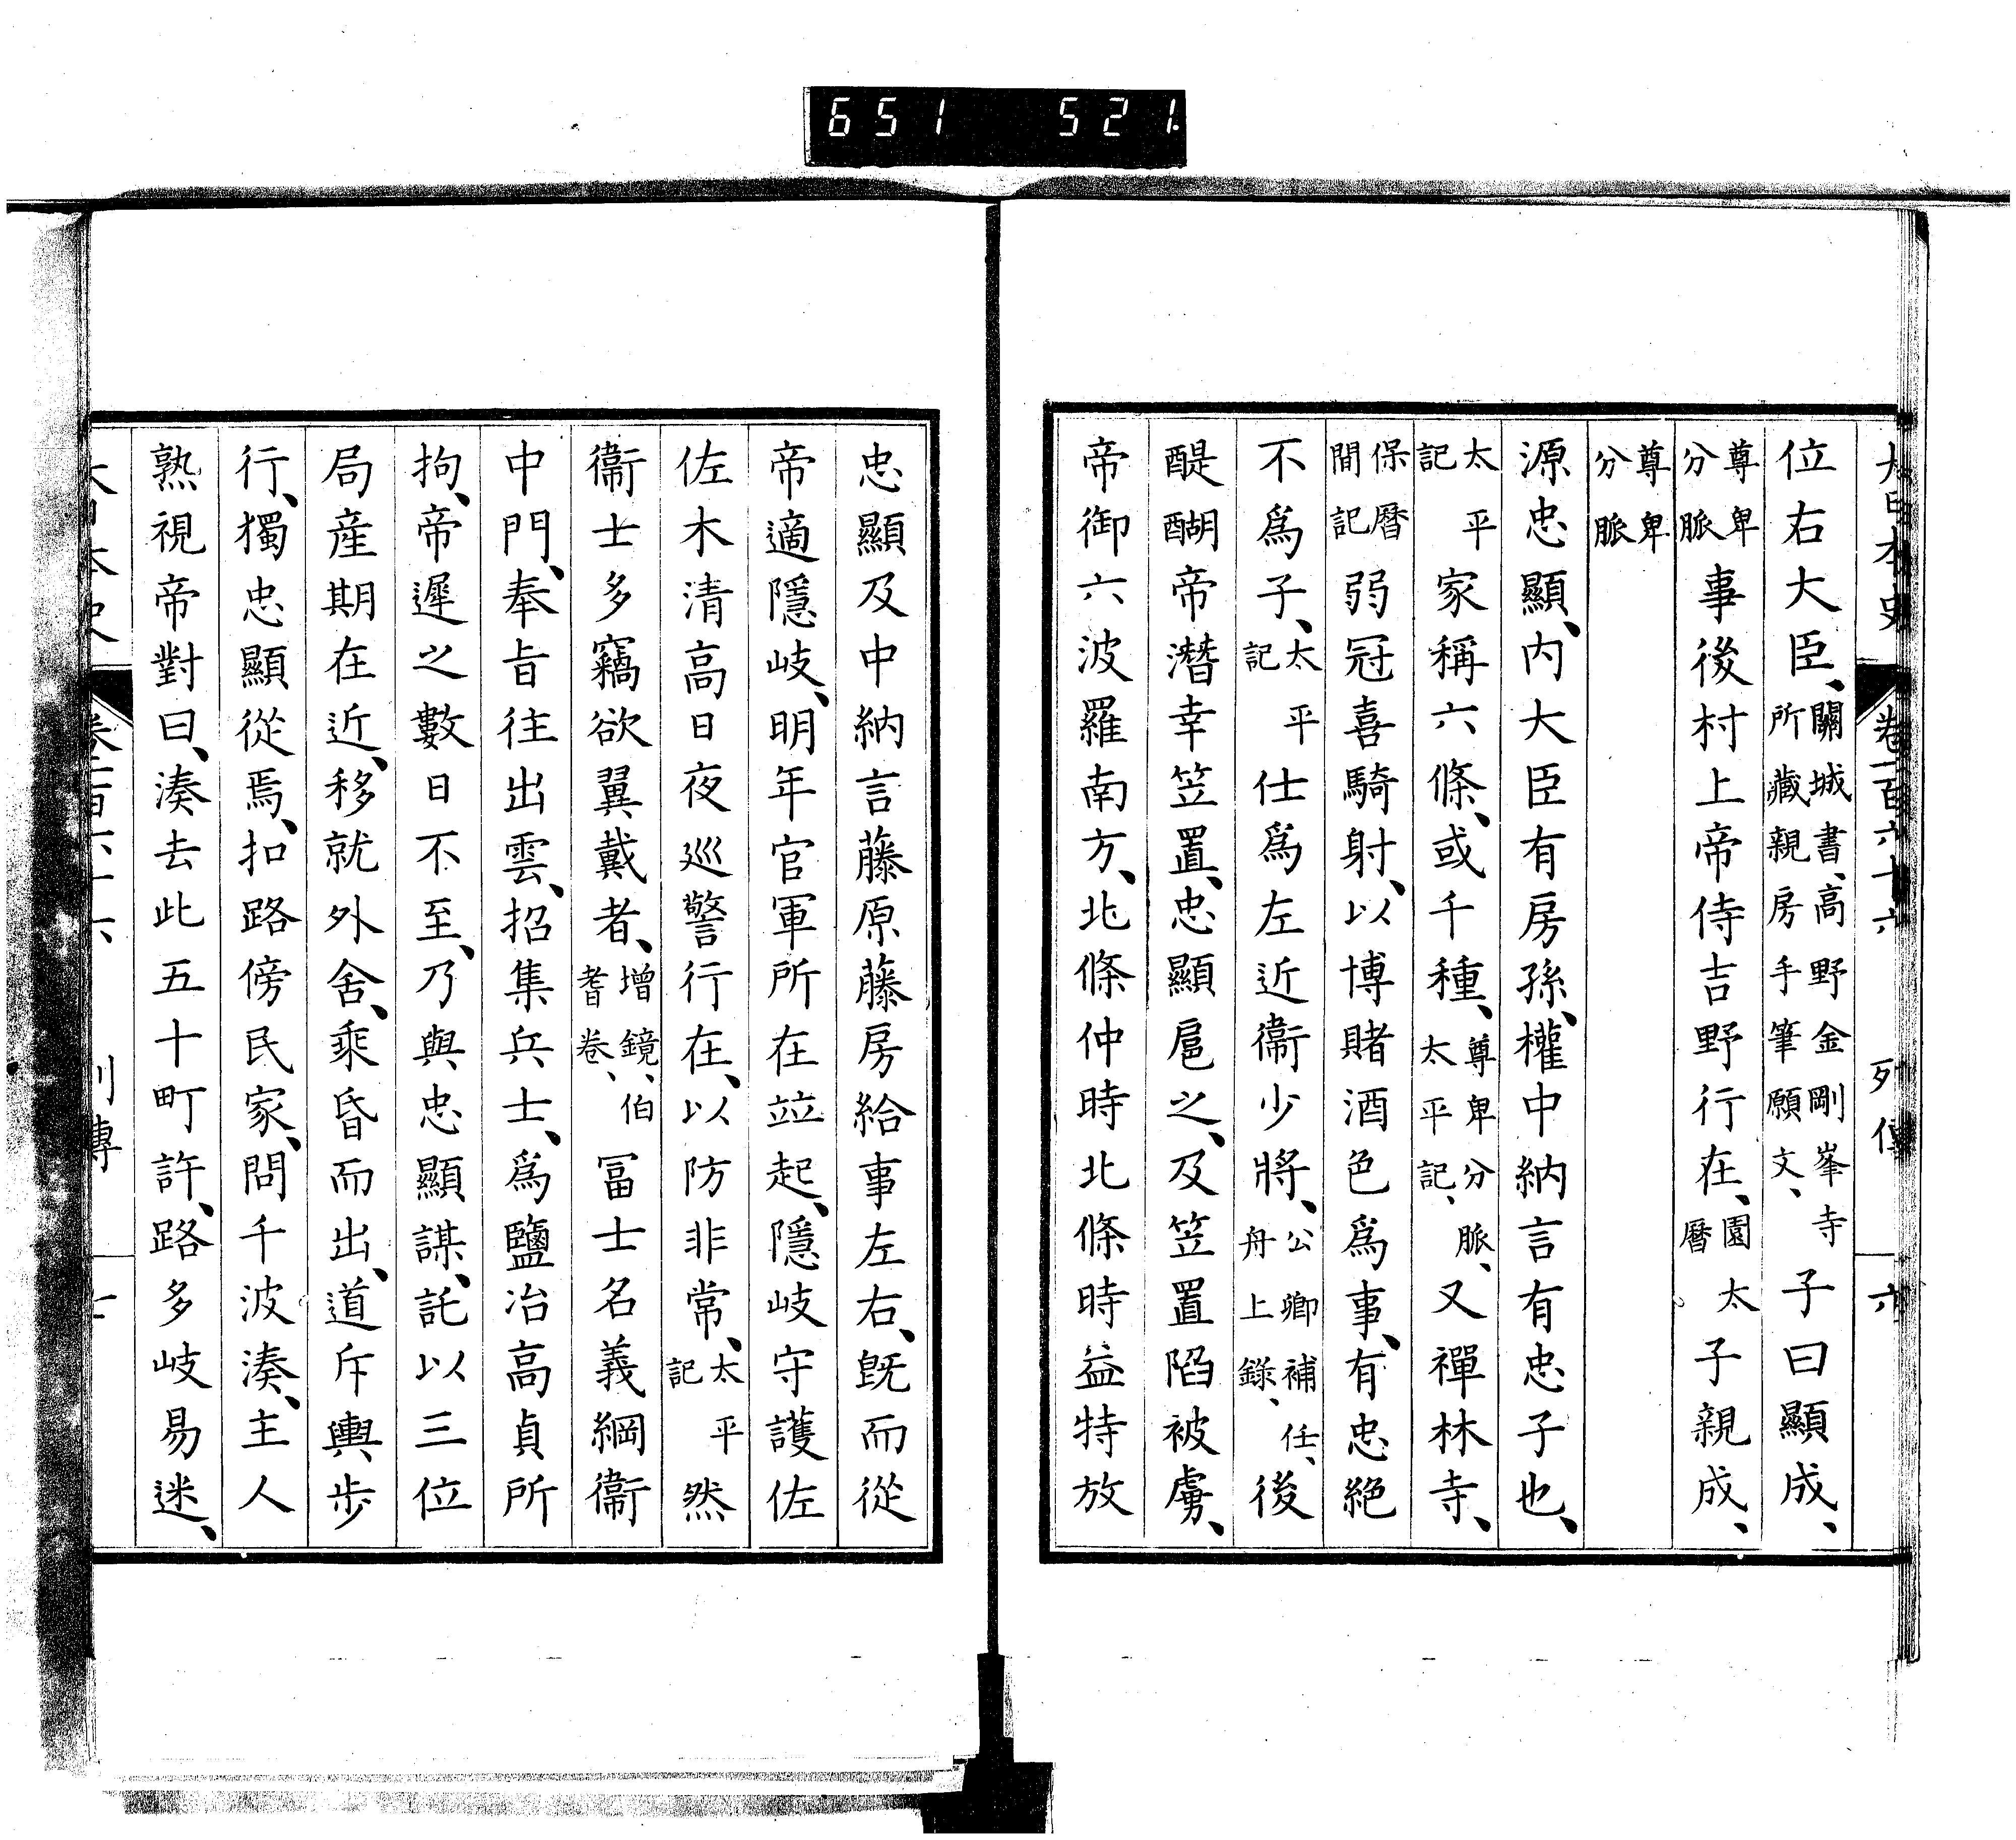 651 521.
大日本史 卷一百六十六 列傳 六
位右大臣、關城書、高野金剛峯寺所藏親房手筆願文、子曰顯成、
尊卑分脈事後村上帝侍吉野行在、園太曆子親成、
尊卑分脈
源忠顯、內大臣有房孫、權中納言有忠子也、
太平記家稱六條、或千種、尊卑分脈、太平記、又禪林寺、
保曆間記弱冠喜騎射、以博賭酒色爲事、有忠絕
不爲子、太平記仕爲左近衞少將、公卿補任、舟上錄、後
醍醐帝潛幸笠置、忠顯扈之、及笠置陷被虜、
帝御六波羅南方、北條仲時北條時益特放
忠顯及中納言藤原藤房給事左右、旣而從
帝適隱岐、明年官軍所在竝起、隱岐守護佐
佐木清高日夜巡警行在、以防非常、太平記然
衞士多竊欲翼戴者、增鏡、伯耆卷、冨士名義綱衞
中門、奉旨往出雲、招集兵士、爲鹽冶高貞所
拘、帝遲之數日不至、乃與忠顯謀、託以三位
局産期在近、移就外舍、乘昏而出、道斥輿步
行、獨忠顯從焉、扣路傍民家、問千波湊、主人
熟視帝對曰、湊去此五十町許、路多岐易迷、